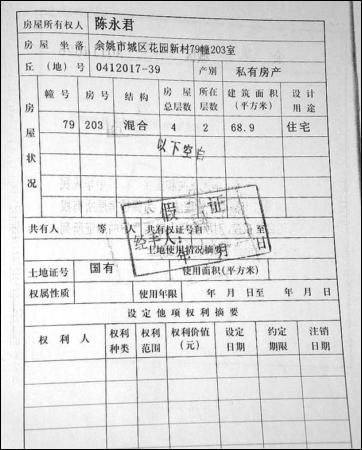 房屋所有权人 陈永君
房屋坐落 余姚市城区花园新村79幢203室
丘(地)号 0412017-39 产别 私有房产
房屋状况 幢号 房号 结构 房屋总层数 所在层数 建筑面积(平方米) 设计用途
79 203 混合 4 2 68.9 住宅
以下空白
假证
共有人 等 人 共有权证号自 至
经手人:
土地使用情况摘要
年 月 日
土地证号 国有 使用面积(平方米)
权属性质 使用年限 年 月 日至 年 月 日
设定他项权利摘要
权利人 权利种类 权利范围 权利价值(元) 设定日期 约定期限 注销日期